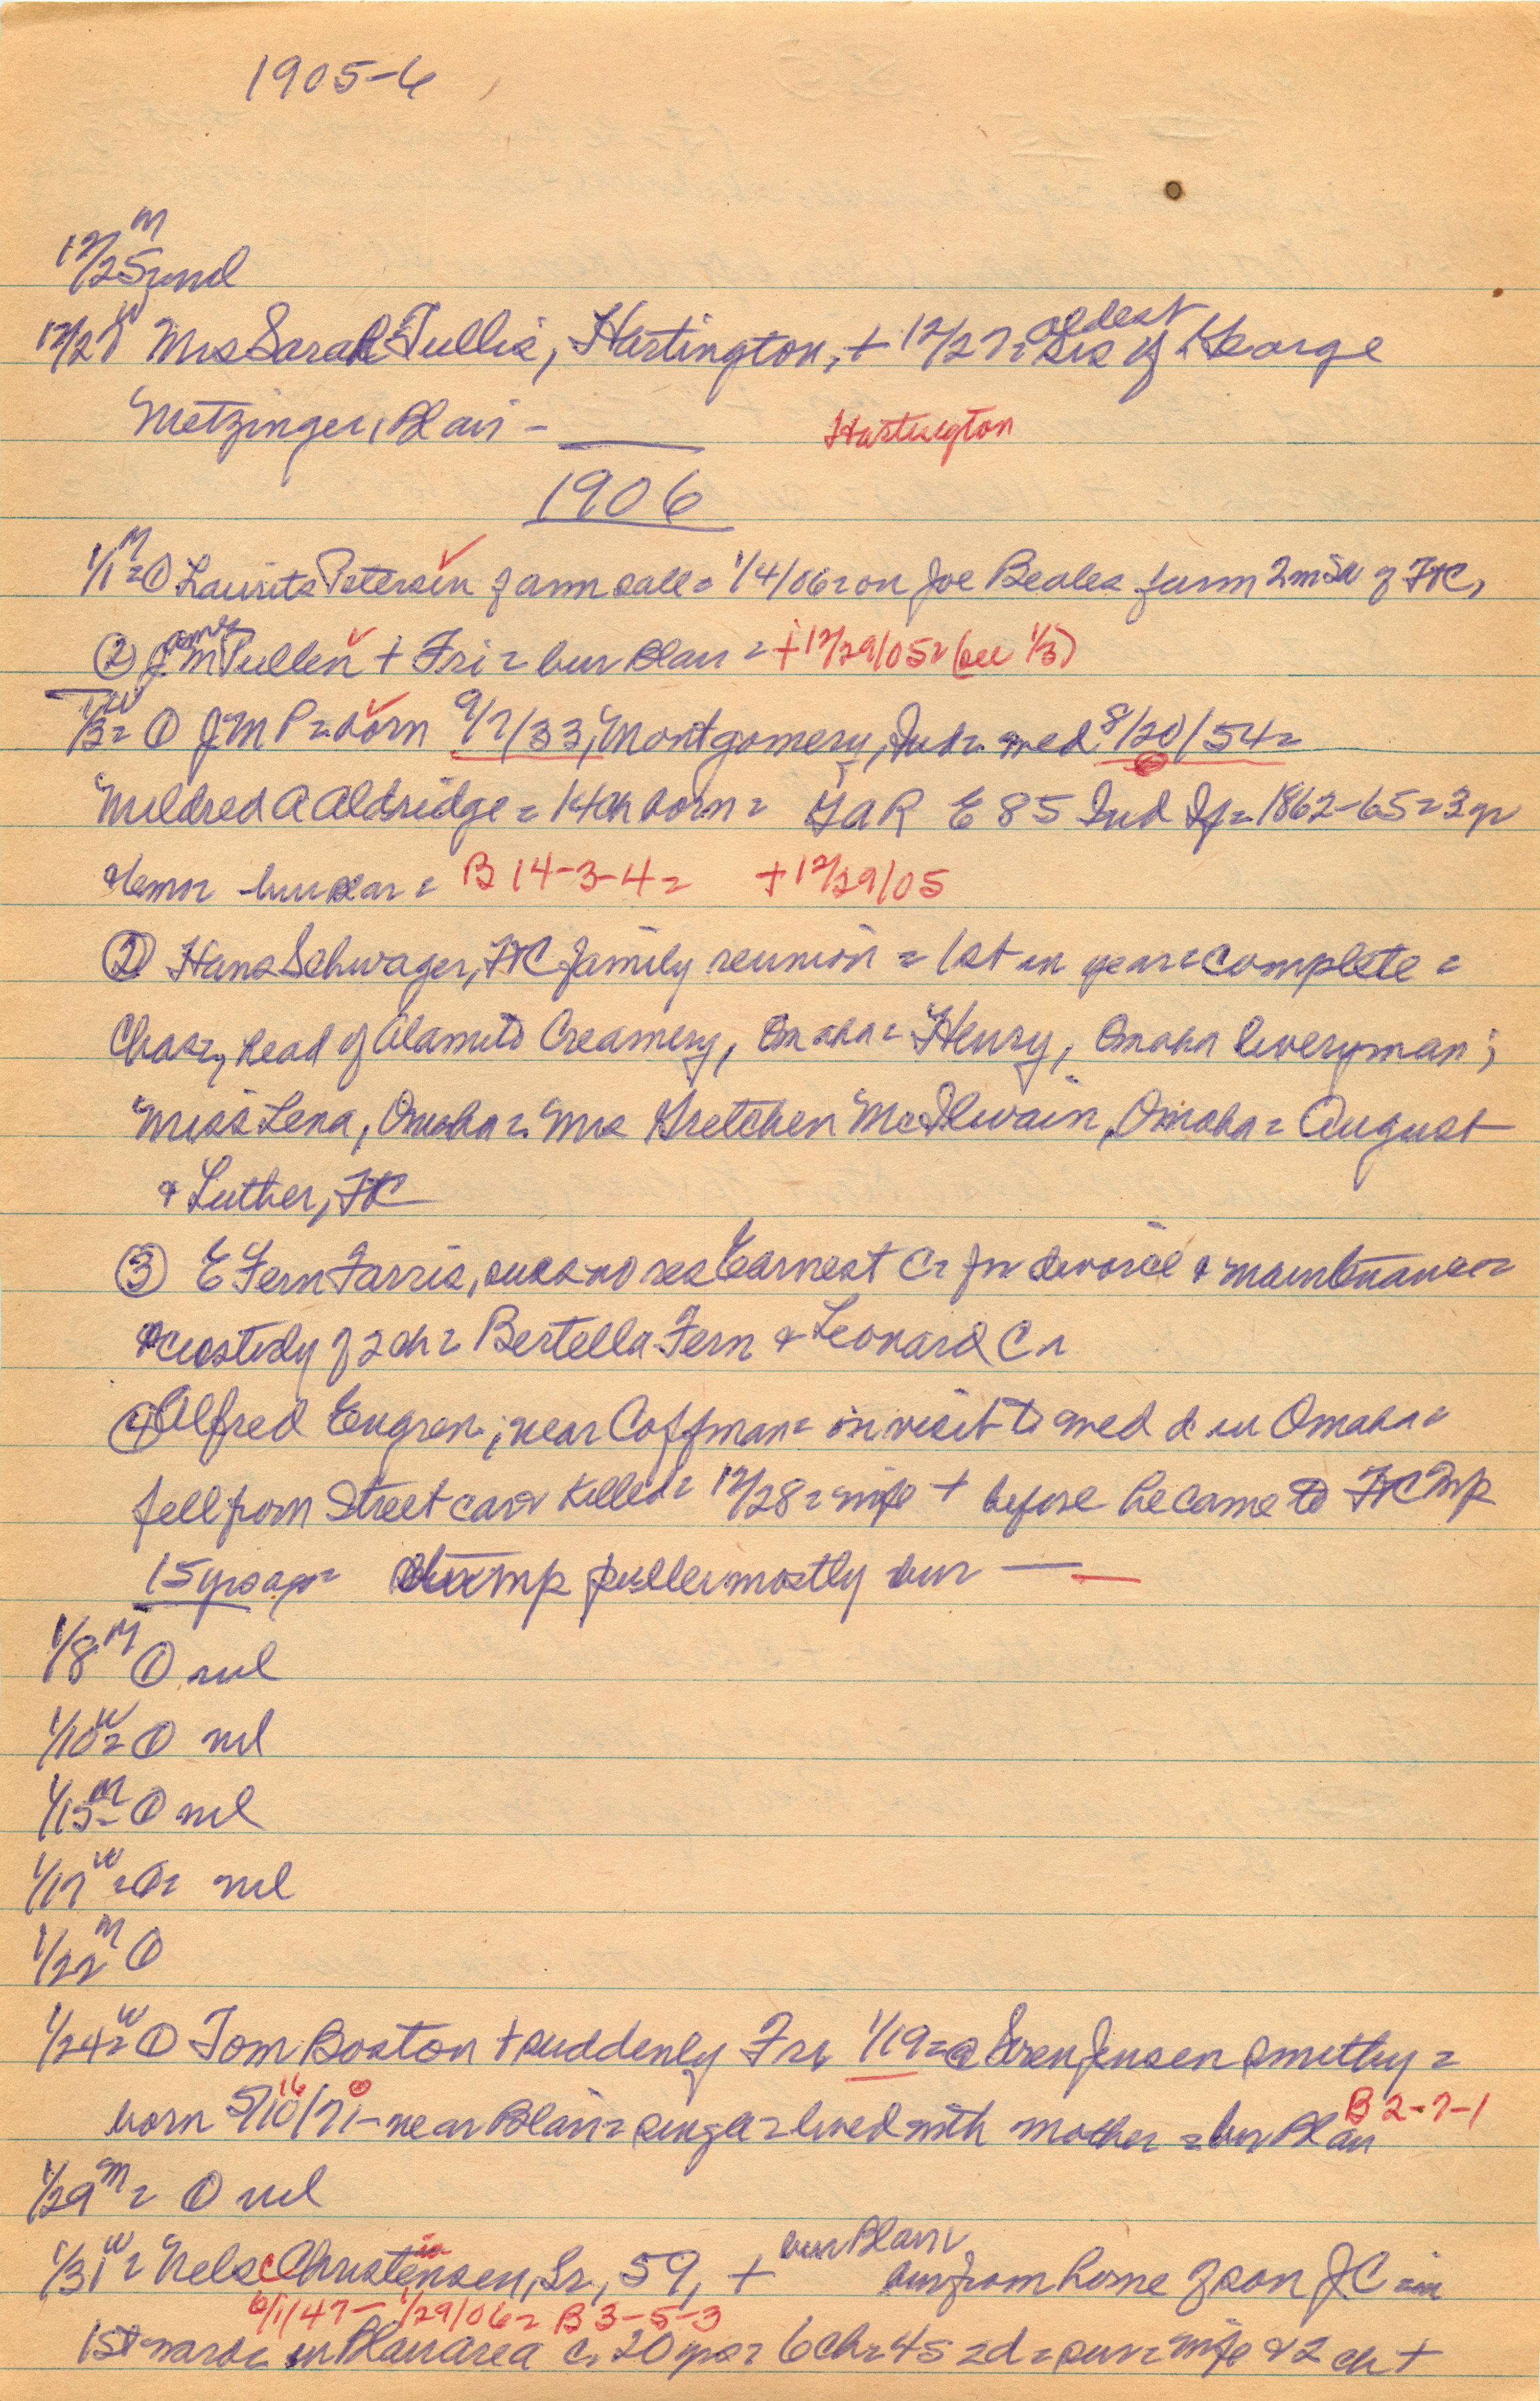 1905-6
12/25 M = nil
12/27 W Mrs Sarah Tullis, Hartington, + 12/27 = oldest sis of George
Metzinger, Blair - ____ Hartington
1906
1/1 M = ① Laurits Petersen ✓ farm sale = 1/4/06 = on Joe Beales farm 2 m SW of FtC,
② J M Pullen ✓ + Fri = bur Blair = + 12/29/05 = (see 1/3)
1/3 W = ① J M P = born 9/7/33, Montgomery, Ind = med 8/20/54 =
Mildred A Aldridge = 14 ch born = GAR E 85 Ind Inf = 1862-65 = 3 yr
bur Blair = B 14-3-4 = + 12/29/05
② Hans Schwager, FtC family reunion = 1st in years complete =
Chas, head of Alamito Creamery, Omaha = Henry, Omaha liveryman;
Miss Lena, Omaha = Mrs Gretchen McIlwain, Omaha = August
& Luther, FtC
③ E Fern Farris, sues Earnest C. for divorce & maintenance =
& custody of 2 ch = Bertella Fern & Leonard C.
④ Alfred Engren, near Coffman = on visit to med d in Omaha =
fell from Street car & killed = 12/28 = wife + before he came to FtC
15 yrs ago = stump puller mostly bur — —
1/8 M ① nil
1/10 W = ① nil
1/15 M = ① nil
1/17 W = ① = nil
1/22 M ①
1/24 W = ① Tom Boston + suddenly Fri 1/19 = @ Soren Jensen smithy =
born 5/10/71 16 0 - near Blair = single = lived with mother = bur Blair B 2-7-1
1/29 M = ① nil
1/31 W = Nels C Christensen, Sr., 59, + bur Blair bur from home of son J C in
6/1/47 - 1/29/06 = B 3-5-3
1st in Blair area c. 20 yrs = 6 ch = 4s 2d = surv = wife & 2 ch +